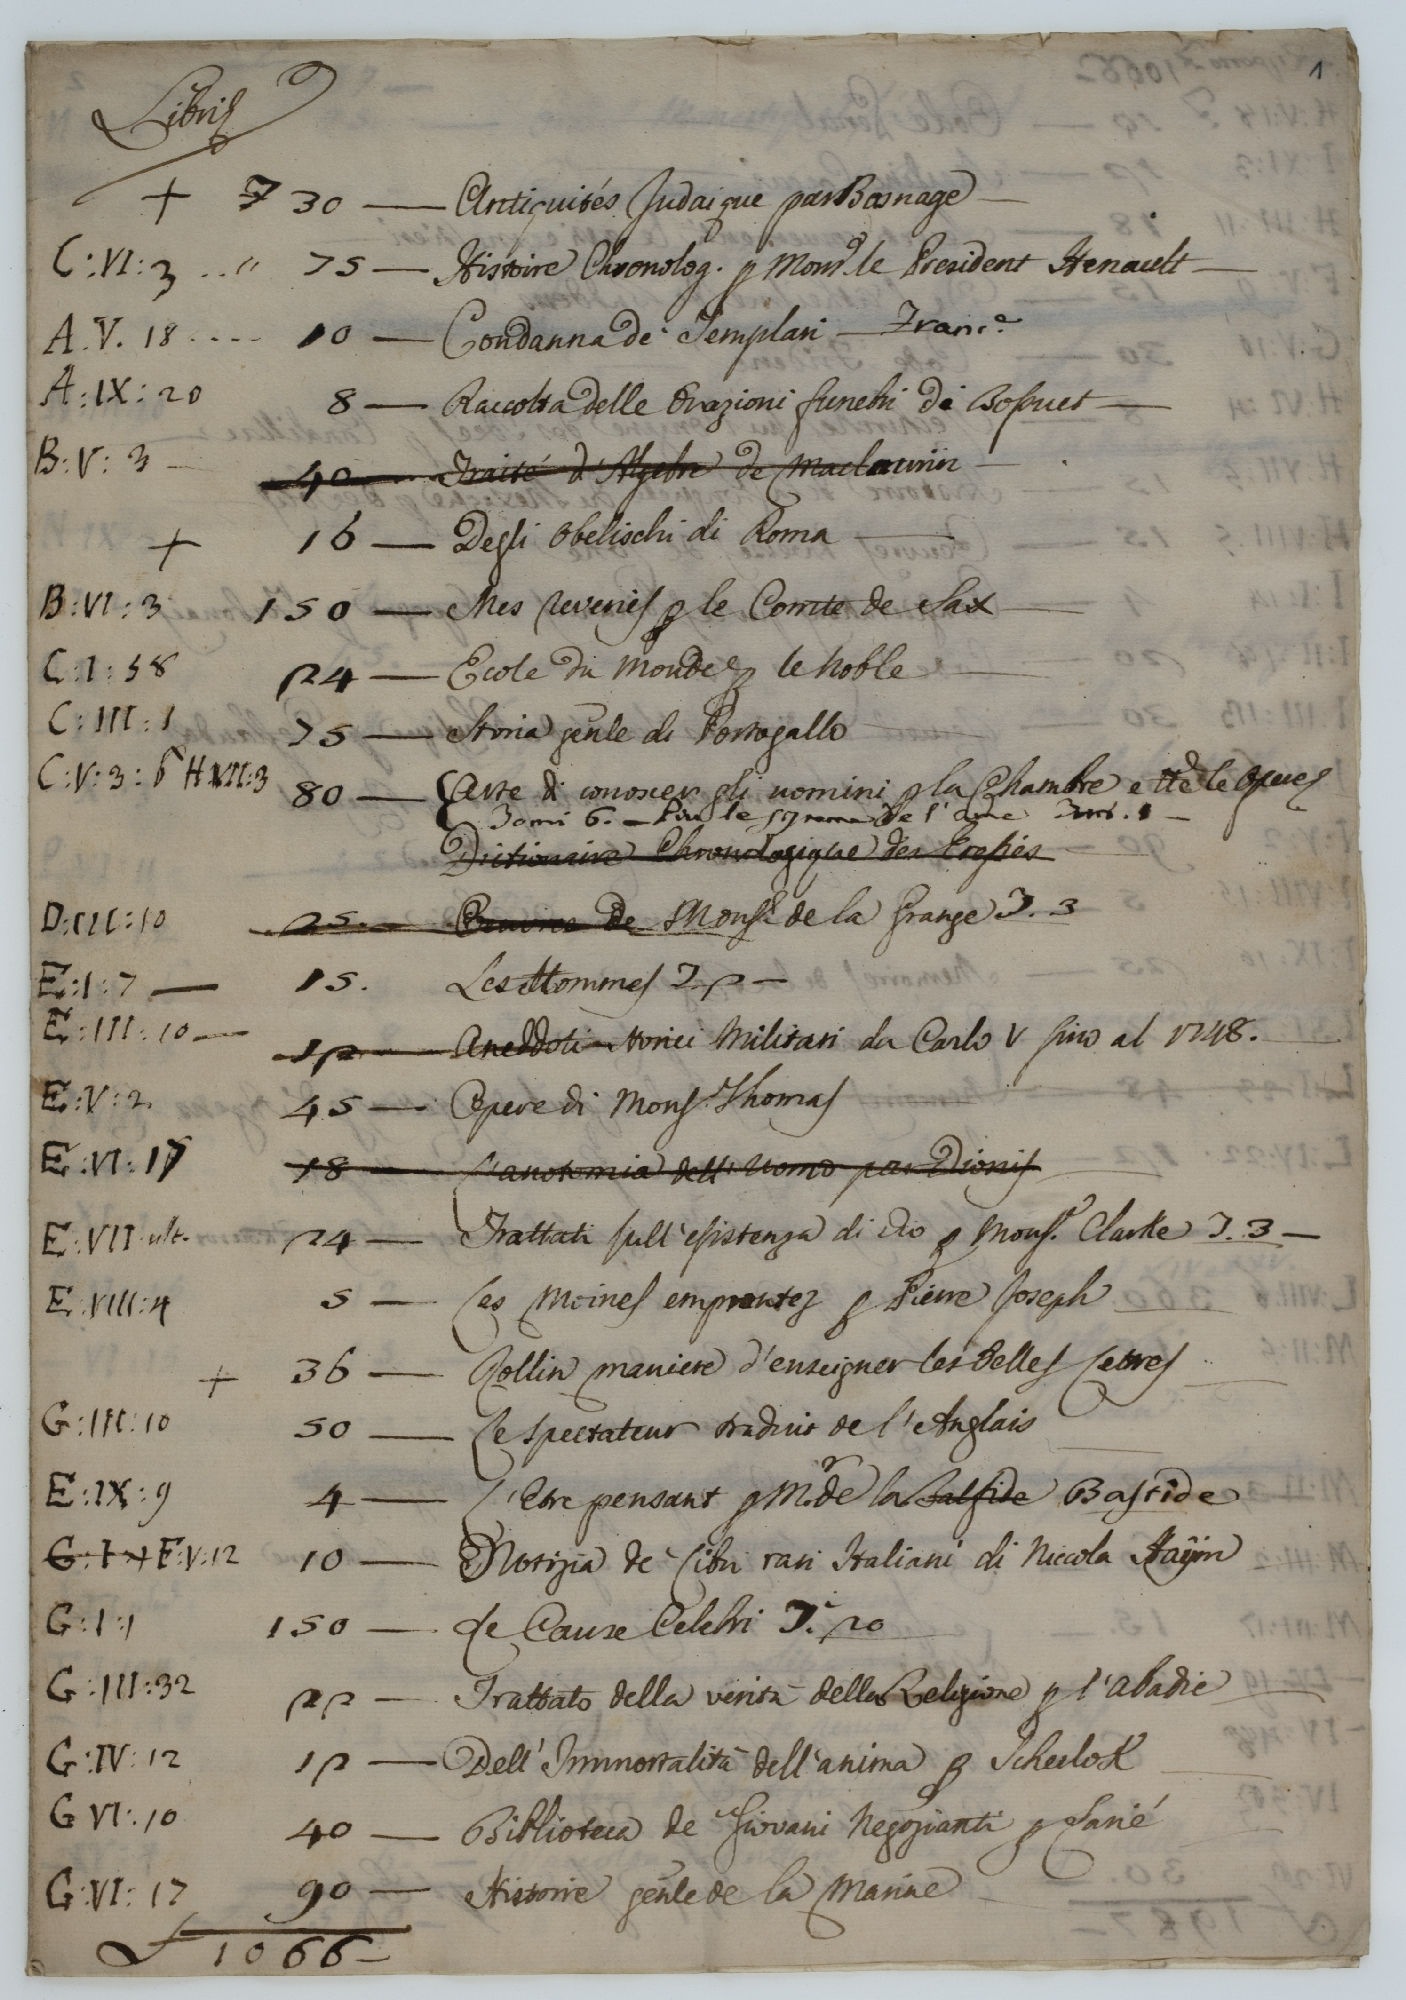 1
Libri
+ 30 — Antiquités Judaique par Basnage —
C:VI:3 .. " 75 — Histoire Chronolog. p Monsr. le President Henault —
A.V. 18 .... 10 — Condanna de Templari — Franc.e
A:IX:20 8 — Raccolta delle Orazioni funebri di Bossuet —
B:V:3 — 40 — Traité d'Algebre de Maclaurin —
+ 16 — Degli Obelischi di Roma —
B:VI:3 150 — Mes reveries p le Comte de Sax —
C:I:58 24 — Ecole du Monde p le Noble —
C:III:1 75 — Storia genle di Portogallo
C:V:3:6 H:VII:3 80 — L'Arte di conoscer gli uomini p la Chambre e
Tomi 6. — le de l'
Dictionaire Chronologique des
D:III:10 25. — de Monsr. de la Grange T. 3
E:I:7 — 15. Les Hommes T. 2 —
E:III:10 — 12 — Aneddoti Storici Militari da Carlo V fino al 1748. —
E:V:2 45 — Opere di Monsr. Thomas
E:VI:17 18 — L'anotomia dell'Uomo par Dionis
E:VII ult. 24 — Trattati sull'esistenza di Dio p Monsr. Clarke T. 3 —
E:VIII:4 5 — Les Moines empruntez p Pierre Joseph
+ 36 — Rollin maniere d'enseigner les Belles Letres
G:III:10 50 — Le Spectateur traduit de l'Anglais
E:IX:9 4 — L'Etre pensant p Mr. de la Bastide
G:I F:V:12 10 — Notizia de Libri rari Italiani di Niccola Haÿm
G:I:1 150 — Le Cause Celebri T. 20
G:III:32 22 — Trattato della verità della Religione p l'Abadie —
G:IV:12 12 — Dell'Immortalità dell'anima p Scherlok
G VI:10 40 — Biblioteca de Giovani Negozianti p Larié
G:VI:17 90 — Histoire genle de la Marine —
1066 —